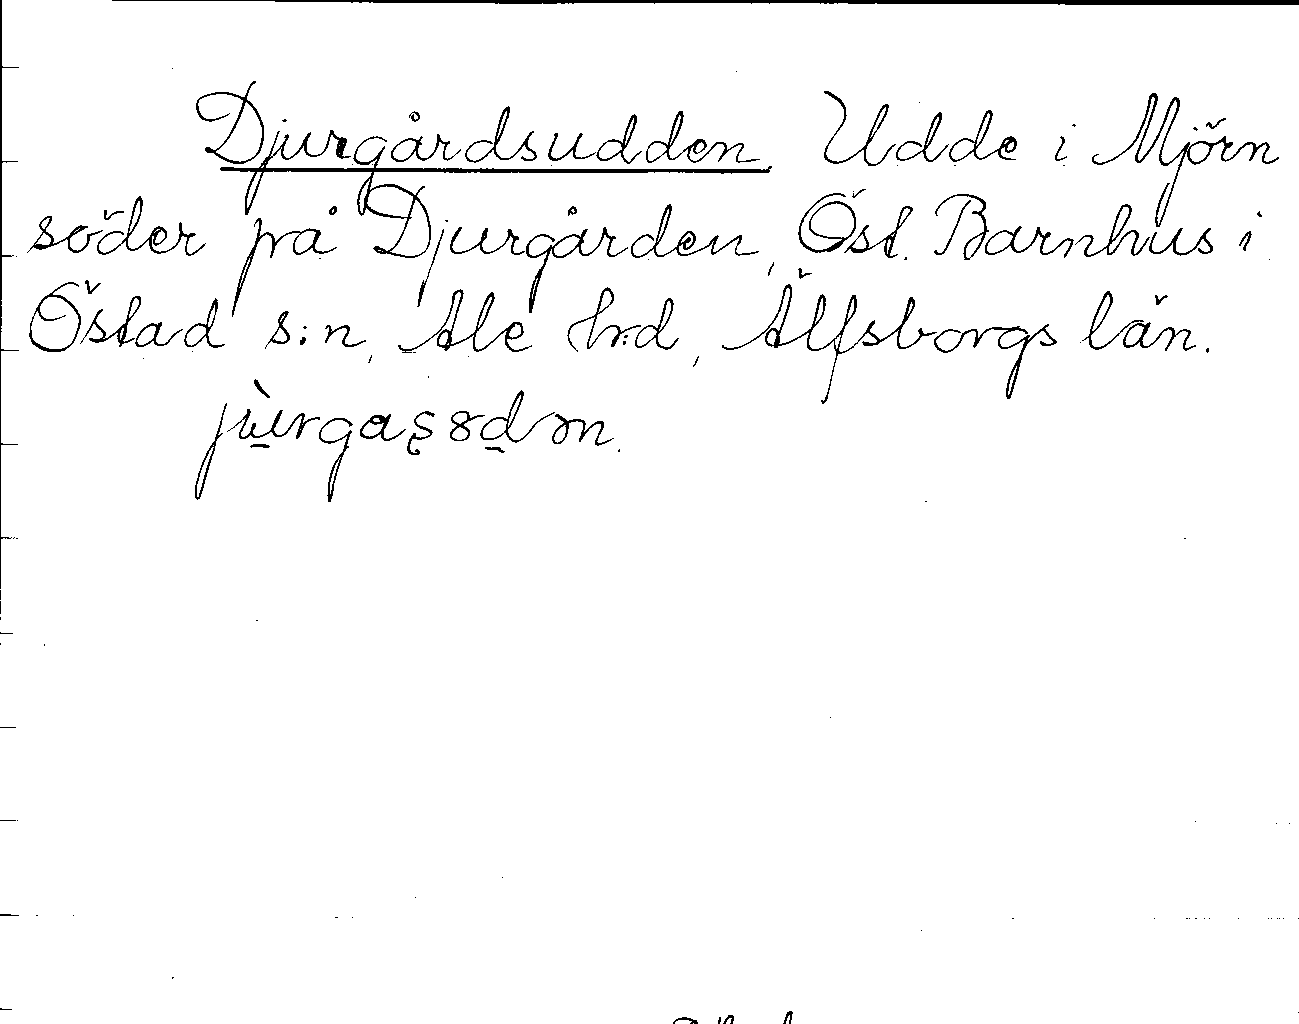 Djurgårdsudden. Udde i Mjörn
söder på Djurgården, Öst. Barnhus i
Östad s:n, Ale hrd, Älfsborgs län.